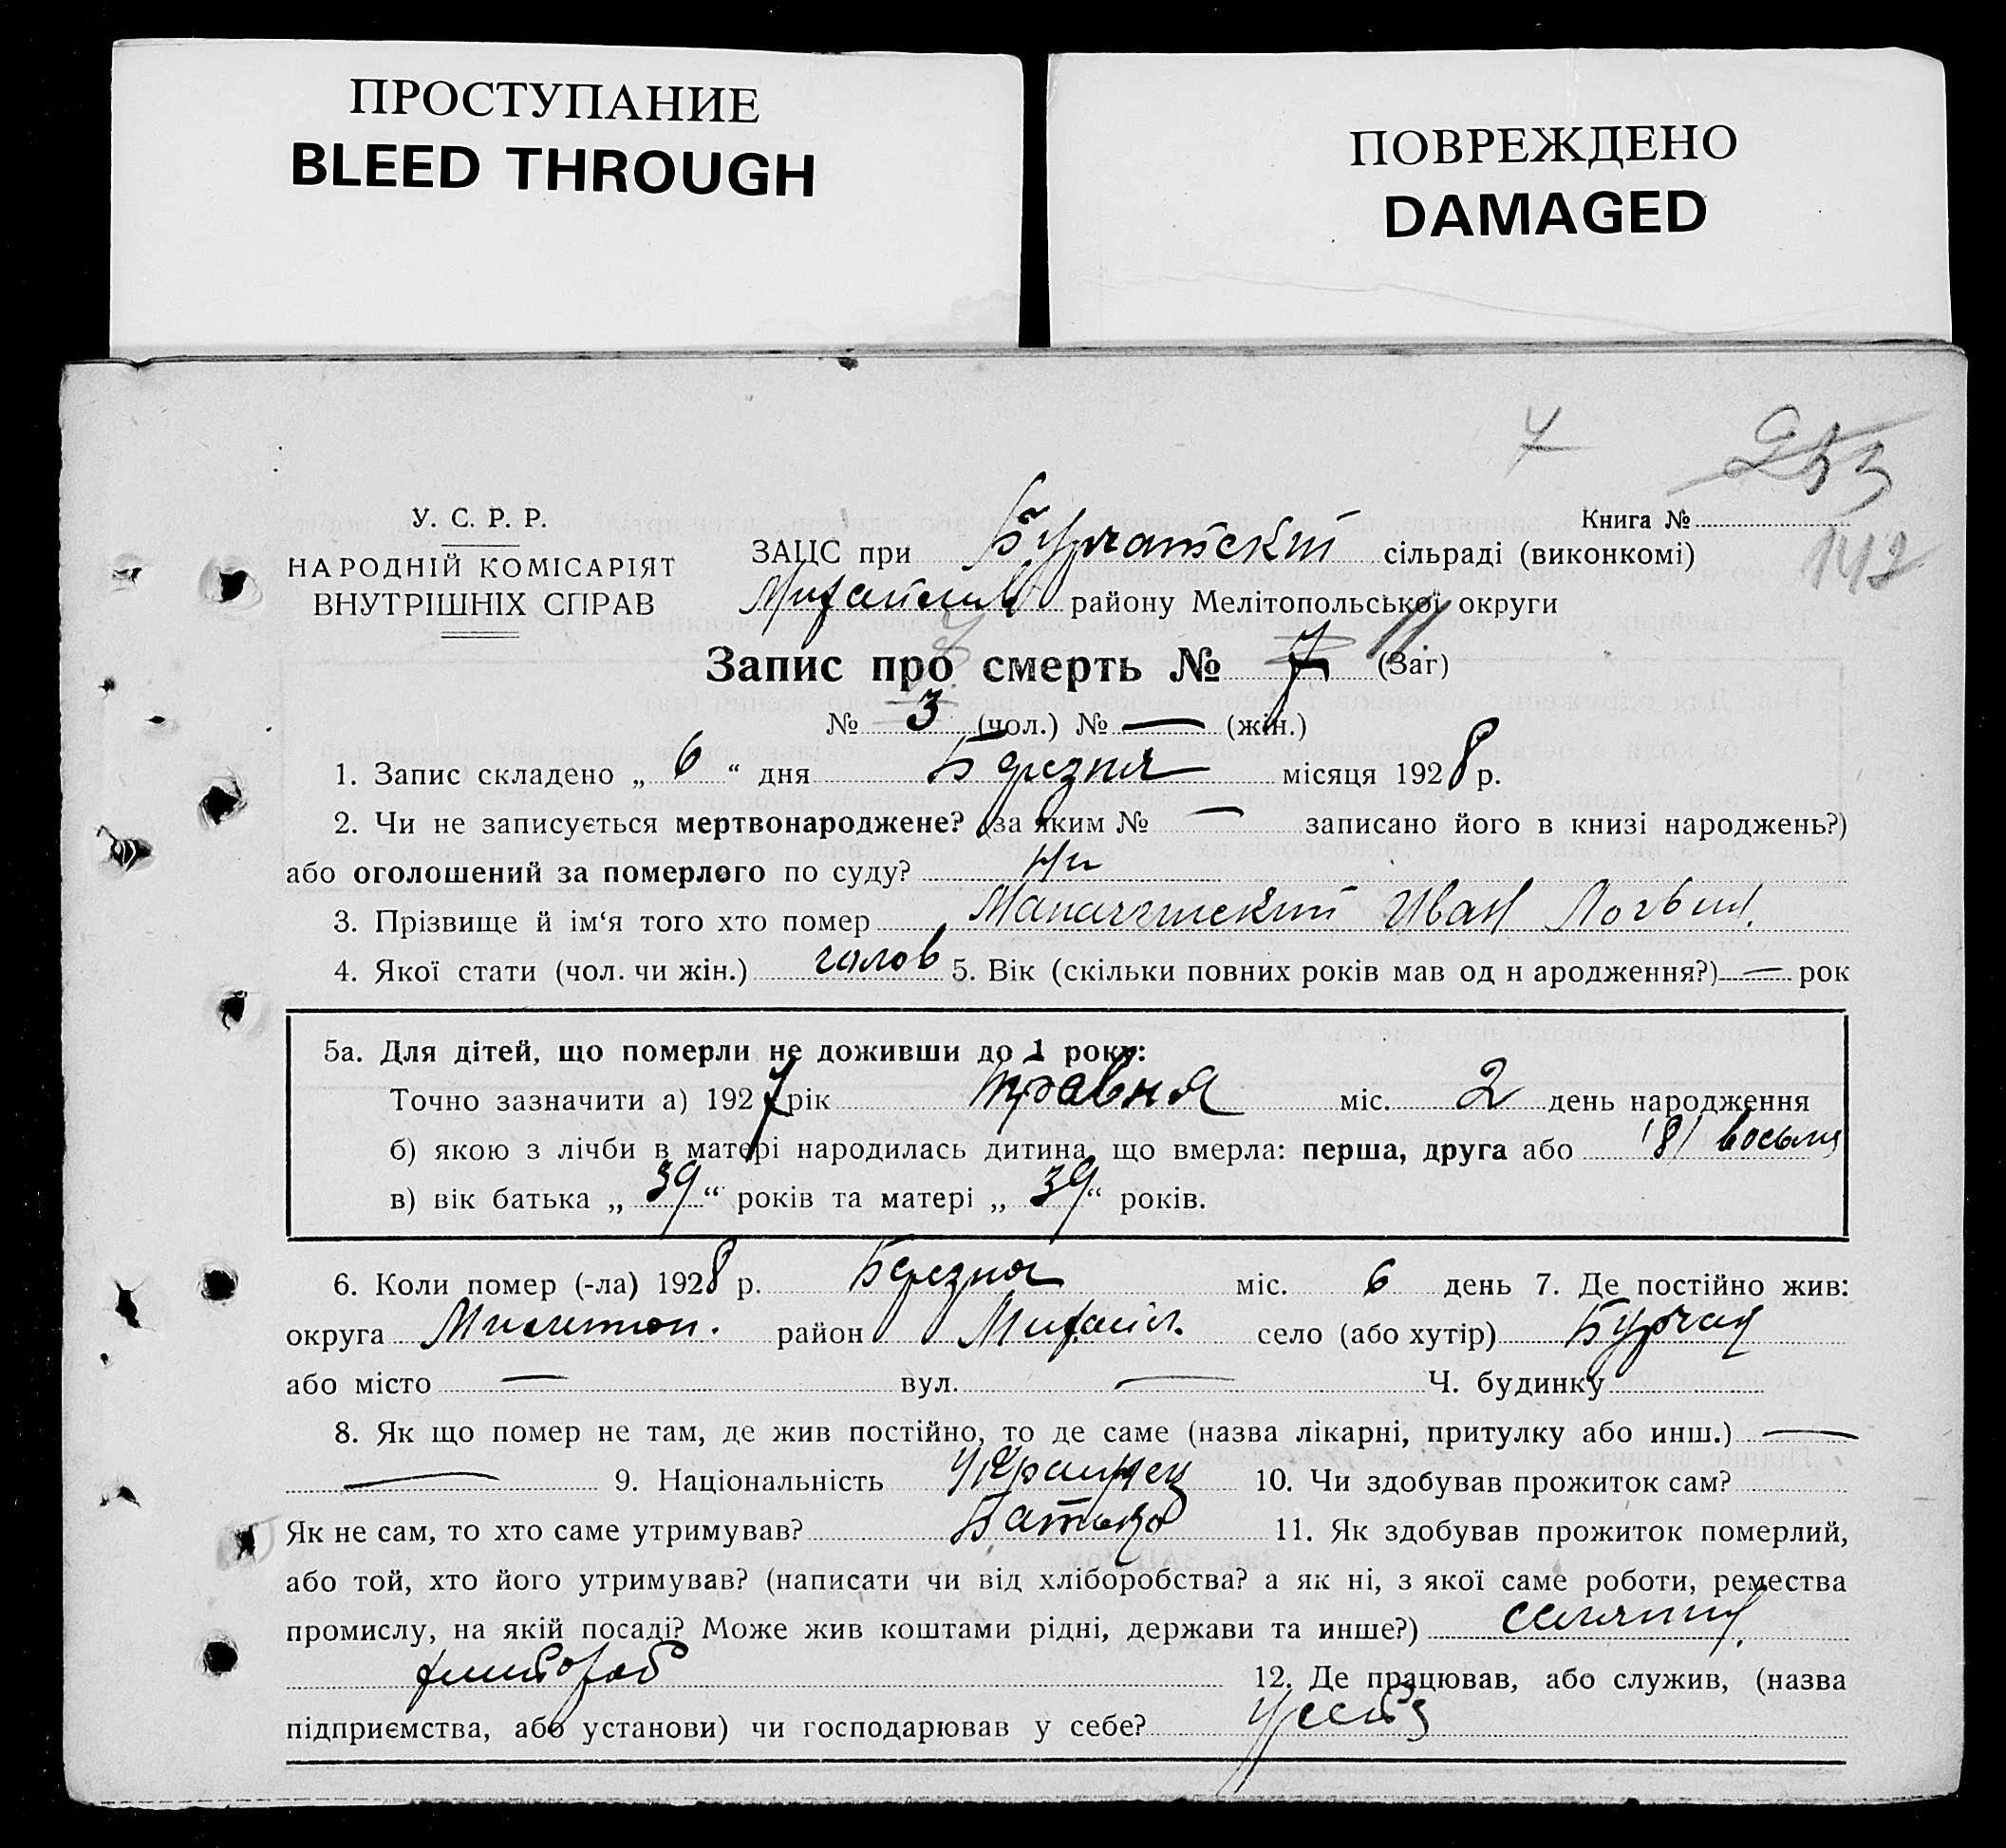 ПРОСТУПАНИЕ
BLEED THROUGH
ПОВРЕЖДЕНО
DAMAGED
7
253
142
У. С. Р. Р.
НАРОДНІЙ КОМІСАРІЯТ
ВНУТРІШНІХ СПРАВ
Книга №
ЗАЦС при Бурчатскій сільраді (виконкомі)
Михайлів району Мелітопольської округи
Запис про смерть № 7 11 (Заг)
№ 3 (чол.) № — (жін.)
1. Запис складено „ 6 “ дня Березня місяця 1928 р.
2. Чи не записується мертвонароджене? (за яким № — записано його в книзі народжень?)
або оголошений за померлого по суду? Ні
3. Прізвище й ім‘я того хто помер Иван Логвин.
4. Якої стати (чол. чи жін.) голов 5. Вік (скільки повних років мав од н ародження?) — рок
5а. Для дітей, що померли не доживши до 1 року:
Точно зазначити а) 1927 рік травня міс. 2 день народження
б) якою з лічби в матері народилась дитина, що вмерла: перша, друга або /8/ восьма
в) вік батька „ 39 “ років та матері „ 39 “ років.
6. Коли помер (-ла) 1928 р. Березня міс. 6 день 7. Де постійно жив:
округа район Михайл. село (або хутір) Бурчак
або місто — вул. — Ч. будинку
8. Як що помер не там, де жив постійно, то де саме (назва лікарні, притулку або инш.) —
— 9. Національність Українец 10. Чи здобував прожиток сам?
Як не сам, то хто саме утримував? Батько 11. Як здобував прожиток померлий,
або той, хто його утримував? (написати чи від хліборобства? а як ні, з якої саме роботи, ремества
промислу, на якій посаді? Може жив коштами рідні, держави та инше?) селянин
хлибороб 12. Де працював, або служив, (назва
підприємства, або установи) чи господарював у себе? У себя